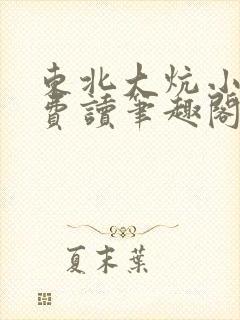 東北大炕小
費讀筆趣閣
夏末葉